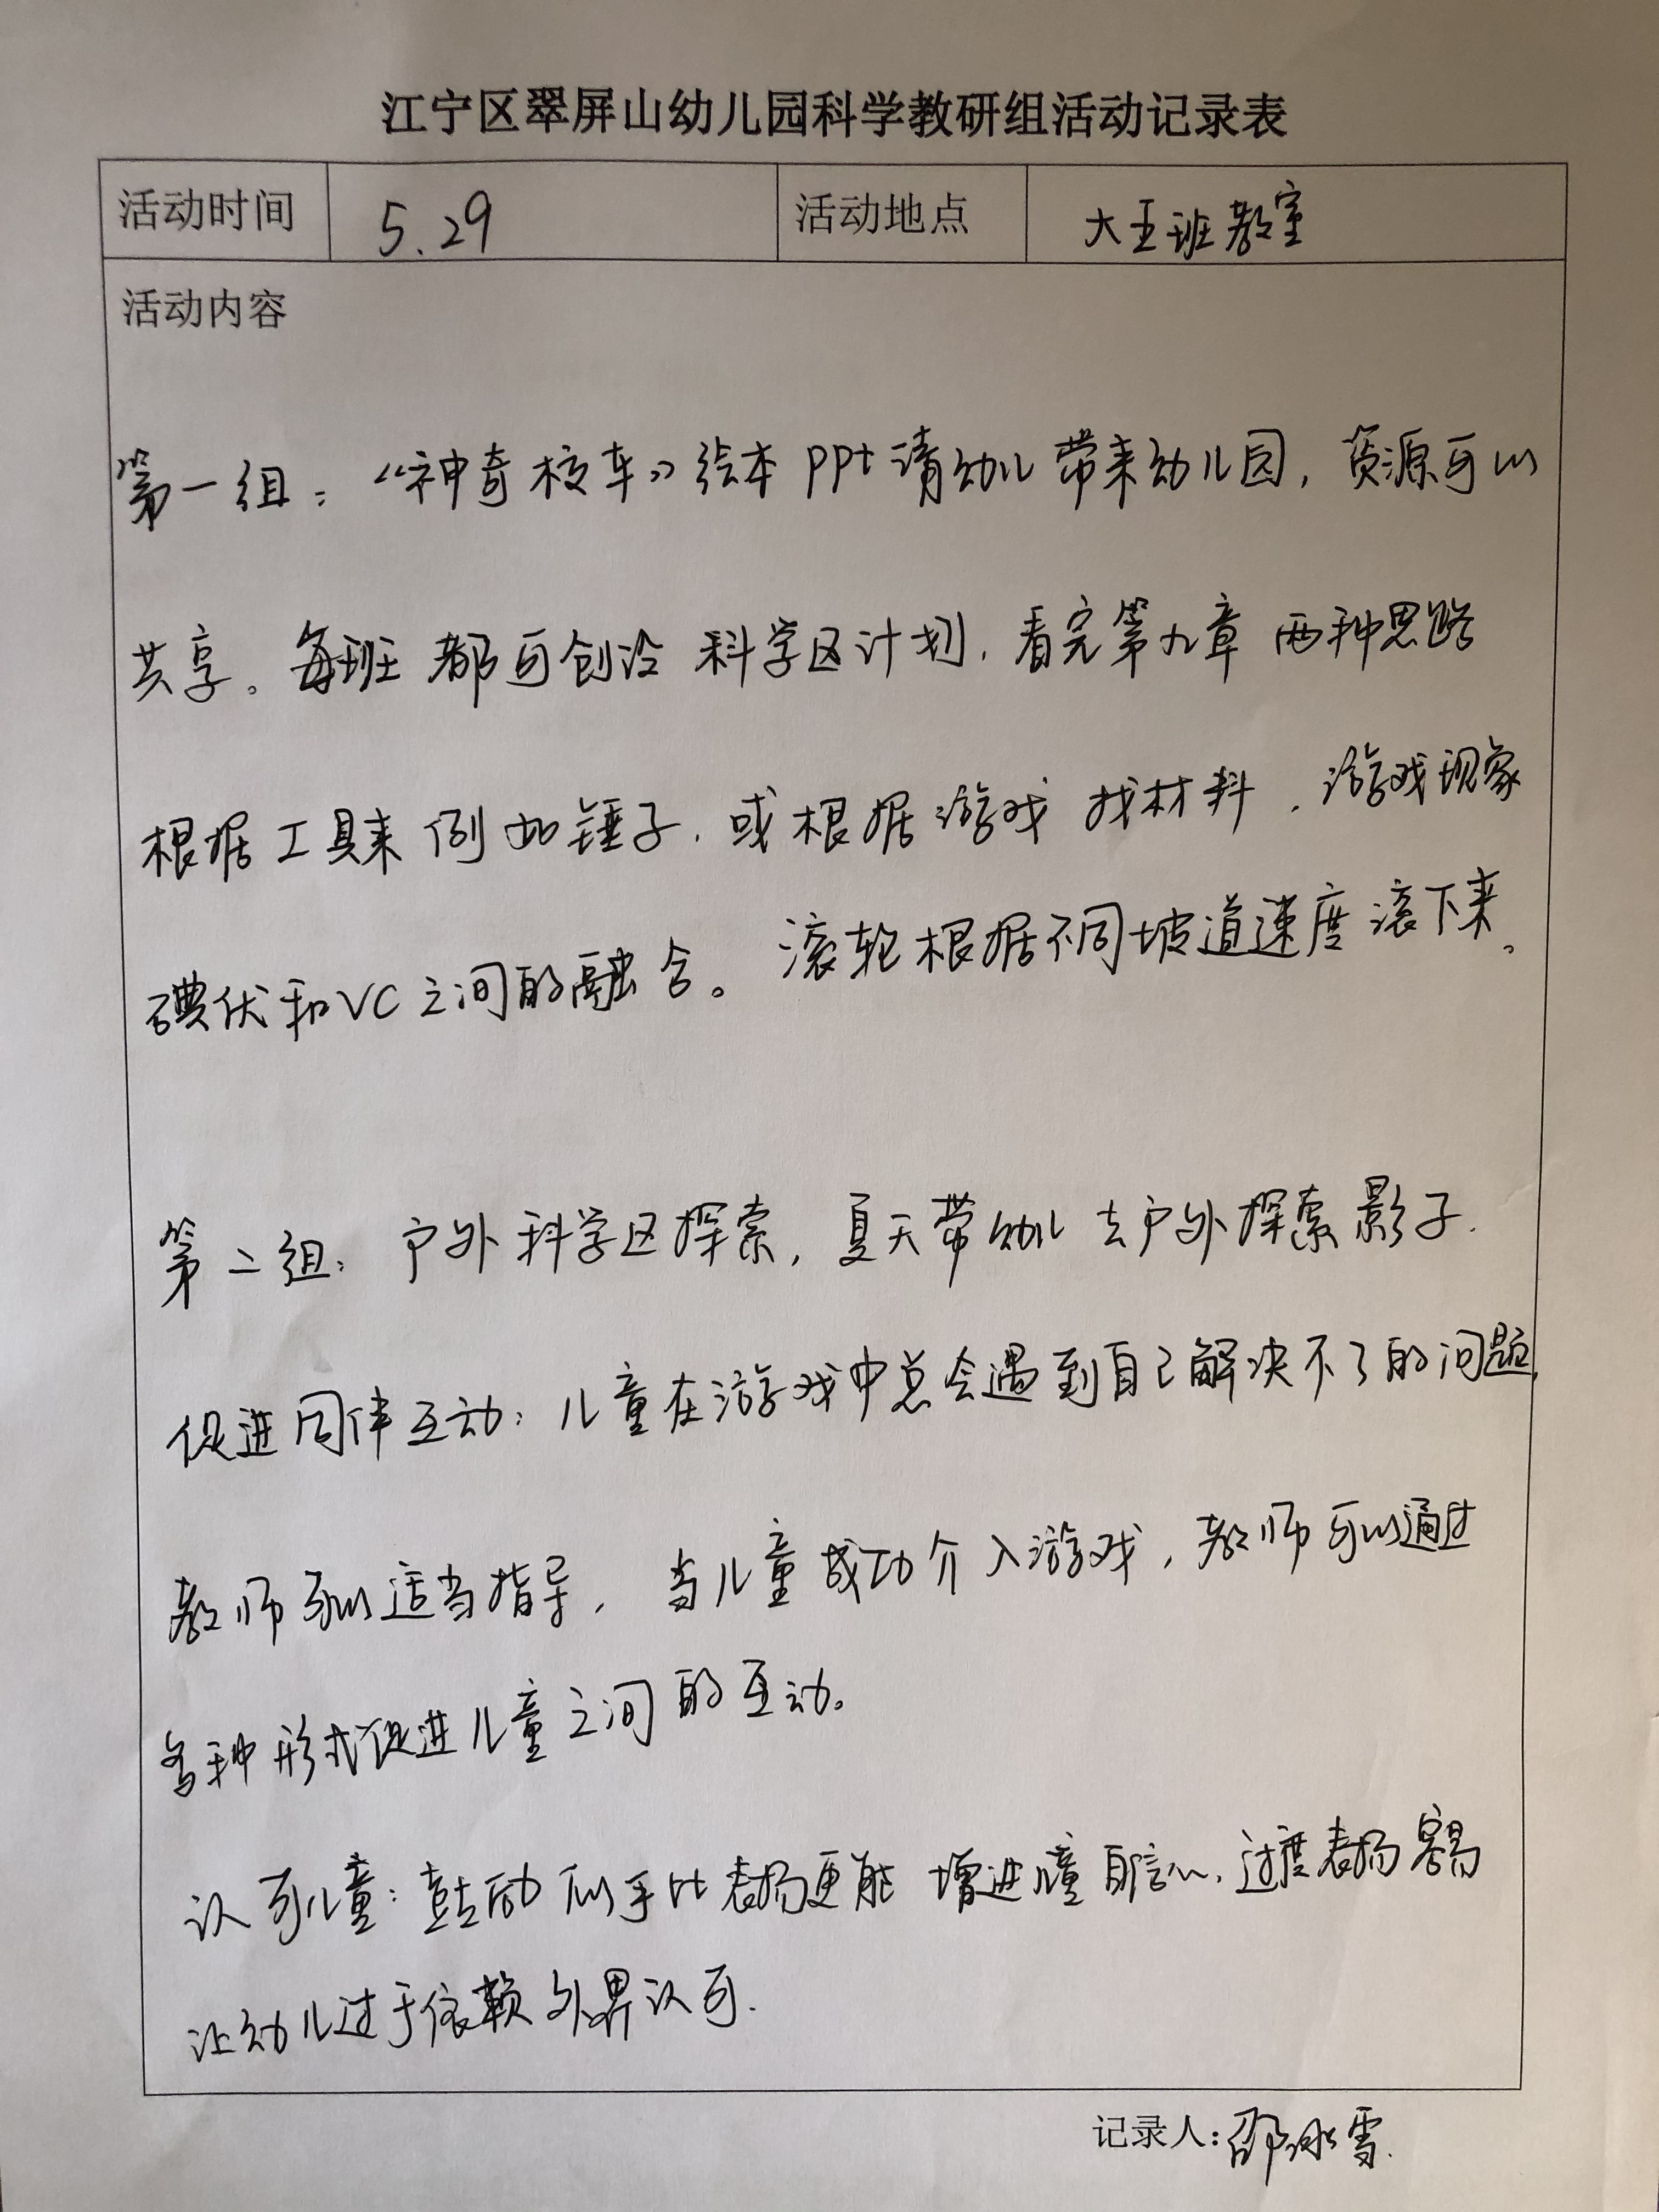 江宁区翠屏山幼儿园科学教研组活动记录表
活动时间 5.29 活动地点 大五班教室
活动内容
第一组：《神奇校车》绘本PPt请幼儿带来幼儿园，资源可以
共享。每班都可创设科学区计划，看完第九章两种思路
根据工具来例如锤子，或根据游戏找材料，游戏现象
碘伏和VC之间的融合。滚轮根据不同坡道速度滚下来。
第二组：户外科学区探索，夏天带幼儿去户外探索影子.
促进同伴互动：儿童在游戏中总会遇到自己解决不了的问题，
教师可以适当指导，当儿童成功介入游戏，教师可以通过
各种形式促进儿童之间的互动。
认可儿童：鼓励似乎比表扬更能增进儿童自信心，过度表扬容易
让幼儿过于依赖外界认可.
记录人：邵冰雪.